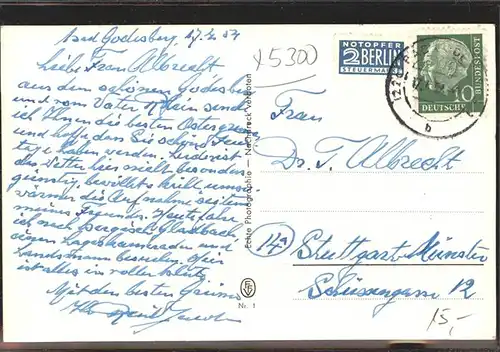 Bad Godesberg, 17/4 54
Liebe Frau Albrecht
aus dem schönen Godesberg
und vom Vater Rhein sende
ich Ihnen die besten Ostergrüsse
und hoffe dass Sie schöne
tage haben werden. Leider ist
das Wetter hier nicht besonders
günstig, bewölkt kühl umso
wärmer die Aufnahme seitens
meines Freundes. Heute fahre
ich nach Bergisch Gladbach,
einen Lagerkameraden und
Landsmann besuchen.
ist alles in voller blüte
Mit den besten Grüssen
Ihr
x5300
NOTOPFER
2 BERLIN
STEUERMARKE
DEUTSCHE
BUNDESPOST
10
b
Echte Photographie – Nachdruck verboten
Nr. 1
Frau
Dr. T. Albrecht
14a
Stuttgart-Münster
Schusengasse 12
15,-